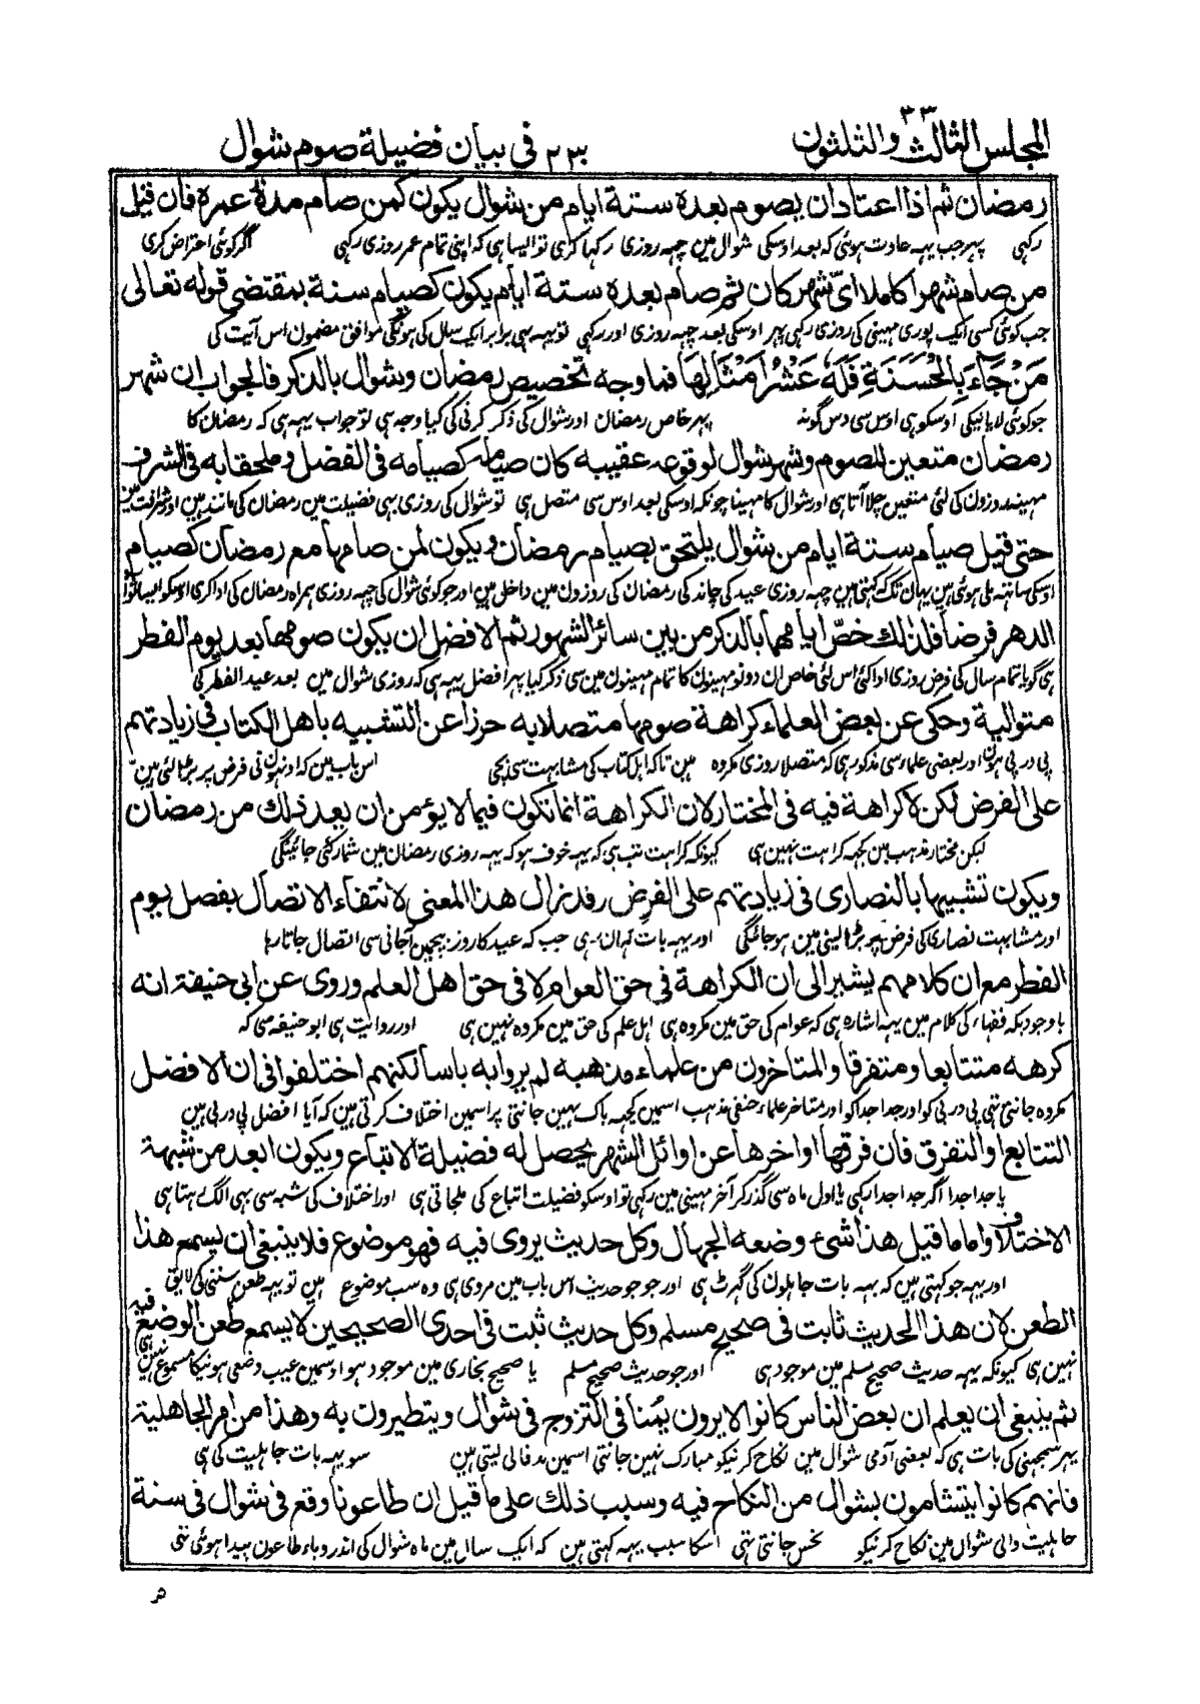 المجلس الثالث والثلثون ٣٣
٢٣٠ فى بيان فضيلة صوم شوال
رمضان ثم اذا اعتاد ان يصوم بعده ستة ايام من شوال يكون كمن صام مدة عمره فان قيل
رکہی پہر جب یہہ عادت ہوئی کہ بعد اوسکی شوال مین چہہ روزی رکہا کری تو ایسا ہی کہ اپنی تمام عمر روزی رکہی اگر کوئی اعتراض کری
من صام شهرا كاملا اىّ شهر كان ثم صام بعده ستة ايام يكون كصيام سنة بمقتضى قوله تعالى
جب کوئی کسی ایک پوری مہینی کی روزی رکہی پہر اوسکی بعد چہہ روزی اور رکہی تو یہہ بہی برابر ایک سال کی ہونگی موافق مضمون اس آیت کی
مَنْ جَآءَ بِالْحَسَنَةِ فَلَهٗ عَشْرُ اَمْثَالِهَا فما وجه تخصيص رمضان وشوال بالذكر فالجواب ان شهر
جو کوئی لایا نیکی اوسکو ہی اوس سی دس گونہ پہر خاص رمضان اور شوال کی ذکر کرنی کی کیا وجہ ہی تو جواب یہہ ہی کہ رمضان کا
رمضان متعين للصوم وشهر شوال لوقوعه عقيبه كان صيامه كصيامه فى الفضل وملحقا به فى الشرف
مہینہ روزون کی لئی متعین چلا آتا ہی اور شوال کا مہینا چونکہ اوسکی بعد اوس سی متصل ہی تو شوال کی روزی بہی فضیلت مین رمضان کی مانند ہین اور شرافت مین
حتى قيل صيام ستة ايام من شوال يلتحق بصيام رمضان ويكون لمن صامها مع رمضان كصيام
اوسکی ساتہہ ملی ہوئی ہین یہان تک کہتی ہین چہہ روزی عید کی چاند کی رمضان کی روزون مین داخل ہین اور جو کوئی شوال کی چہہ روزی ہمراہ رمضان کی ادا کری اوسکو ایسا ثواب
الدهر فرضا فلذلك خصّ ايامهما بالذكر من بين سائر الشهور ثم الافضل ان يكون صومها بعد يوم الفطر
ہی گویا تمام سال کی فرض روزی ادا کئی اس لئی خاص ان دونو مہینون کا تمام مہینون مین سی ذکر کیا پہر افضل یہہ ہی کہ روزی شوال مین بعد عید الفطر کی
متوالية وحكى عن بعض العلماء كراهة صومها متصلا به حرزا عن التشبيه باهل الكتاب فى زيادتهم
پی در پی ہون اور بعضی علماء سی مذکور ہی کہ متصلا روزی مکروہ ہین تا کہ اہل کتاب کی مشابہت سی بچی اس باب مین کہ اونہون نی فرض پر بڑہا لئی ہین
على الفرض لكن لا كراهة فيه فى المختار لان الكراهة انما تكون فيما لا يؤمن ان يعد ذلك من رمضان
لیکن مختار مذہب مین کچہہ کراہت نہین ہی کیونکہ کراہت تب ہی کہ یہہ خوف ہو کہ یہہ روزی رمضان مین شمار کئی جائینگی
ويكون تشبيها بالنصارى فى زيادتهم على الفرض وقد زال هذا المعنى لانتفاء الاتصال بفصل يوم
اور مشابہت نصاری کی فرض پر بڑہا لینی مین ہو جائیگی اور یہہ بات کہان رہی جب کہ عید کا روز بیچمین آجانی سی اتصال جاتا رہا
الفطر مع ان كلامهم يشير الى ان الكراهة فى حق العوام لا فى حق اهل العلم وروى عن ابى حنيفة انه
باوجودیکہ فقہاء کی کلام مین یہہ اشارہ ہی کہ عوام کی حق مین مکروہ ہی اہل علم کی حق مین مکروہ نہین ہی اور روایت ہی ابو حنیفہ سی کہ
كرهه متتابعا ومتفرقا والمتاخرون من علماء مذهبه لم يروا به باسا لكنهم اختلفوا فى ان الافضل
مکروہ جانتی تہی پی در پی کو اور جدا جدا کو اور متاخر علماء حنفی مذہب اسمین کچہہ باک نہین جانتی پر اسمین اختلاف کرتی ہین کہ آیا افضل پی در پی ہین
التتابع او التفرق فان فرقها او اخرها عن اوائل الشهر يحصل له فضيلة الاتباع ويكون ابعد من شبهة
یا جدا جدا اگر جدا جدا رکہی یا اول ماہ سی گذر کر آخر مہینی مین رکہی تو اوسکو فضیلت اتباع کی ملجاتی ہی اور اختلاف کی شبہ سی بہی الگ رہتا ہی
الاختلاف واما ما قيل هذا شئ وضعه الجهال وكل حديث يروى فيه فهو موضوع فلا ينبغى ان يسمع هذا
اور یہہ جو کہتی ہین کہ یہہ بات جاہلون کی گہڑت ہی اور جو جو حدیث اس باب مین مروی ہی وہ سب موضوع ہین تو یہہ طعن سننی کی لایق
الطعن لان هذا الحديث ثابت فى صحيح مسلم وكل حديث ثبت فى احدى الصحيحين لا يسمع طعن الوضع فيه
نہین ہی کیونکہ یہہ حدیث صحیح مسلم مین موجود ہی اور جو حدیث صحیح مسلم یا صحیح بخاری مین موجود ہو اوسمین عیب وضعی ہونیکا مسموع نہین ہی
ثم ينبغى ان يعلم ان بعض الناس كانوا لا يرون يُمنا فى التزوج فى شوال ويتطيرون به وهذا من امر الجاهلية
پہر سمجہنی کی بات ہی کہ بعضی آدمی شوال مین نکاح کرنیکو مبارک نہین جانتی اسمین بدفالی لیتی ہین سو یہہ بات جاہلیت کی ہی
فانهم كانوا يتشامون بشوال من النكاح فيه وسبب ذلك على ما قيل ان طاعونا وقع فى شوال فى سنة
جاہلیت والی شوال مین نکاح کرنیکو نحس جانتی تہی اسکا سبب یہہ کہتی ہین کہ ایک سال مین ماہ شوال کی اندر وباء طاعون پیدا ہوئی تہی